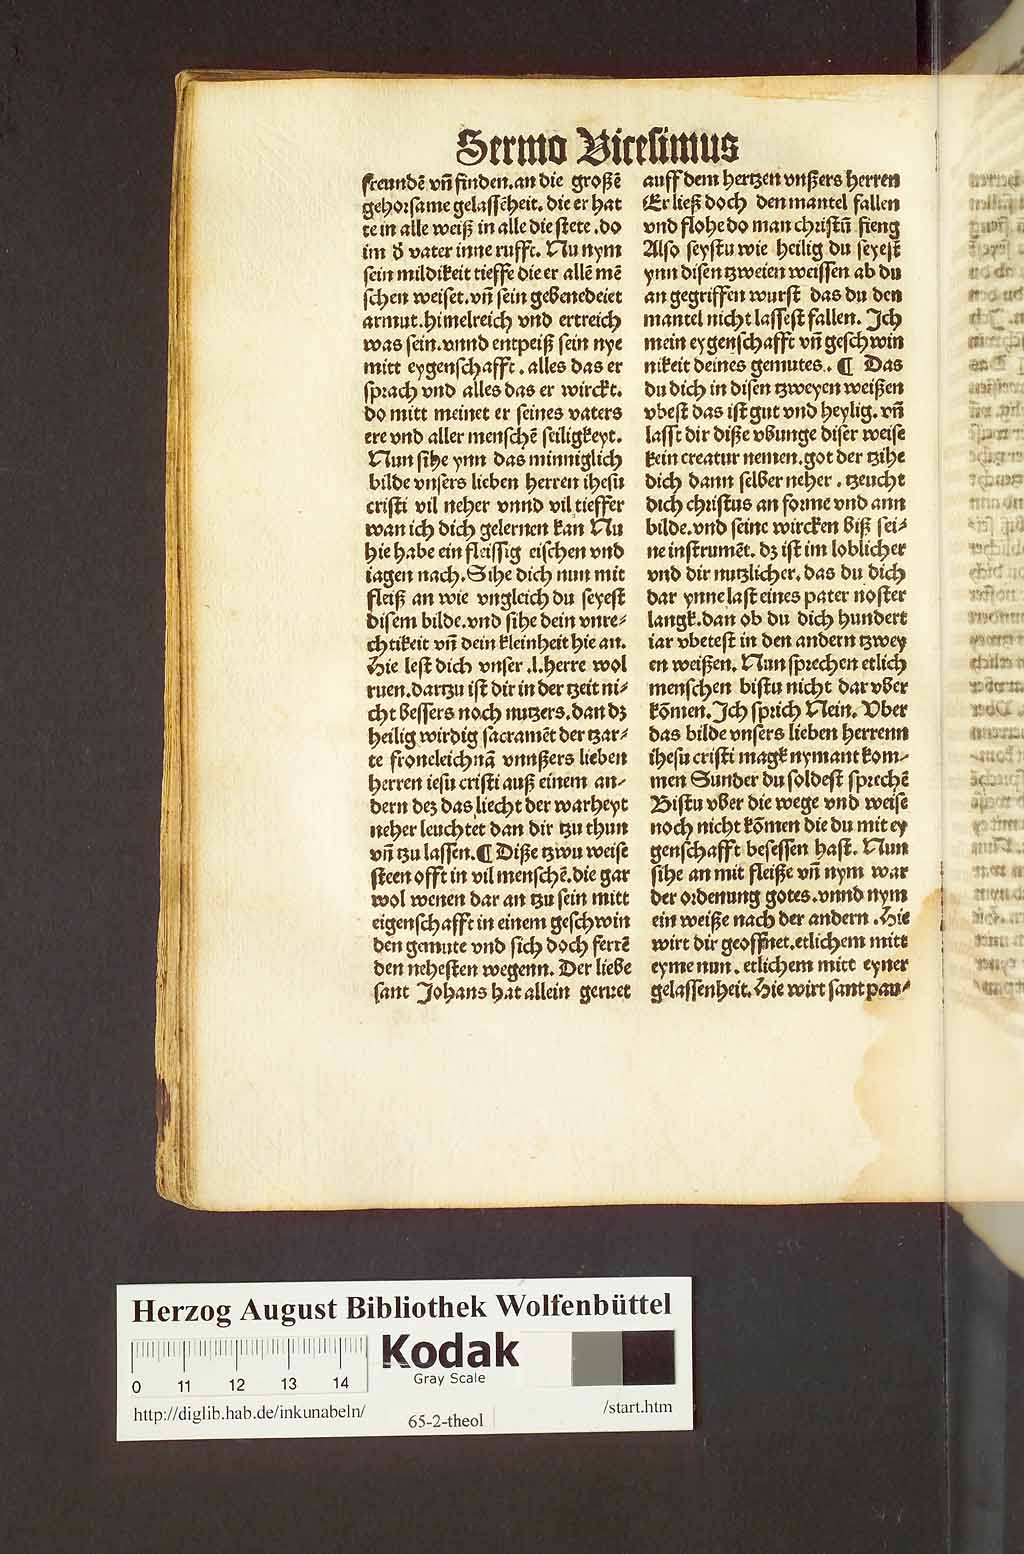 Sermo Vicesimus
freundē vñ finden.an die großē
gehorsame gelassēheit. die er hat
te in alle weiß in alle die stete .do
im d̄ vater inne rufft. Nu nym
sein mildikeit tieffe die er allē mē
schen weiset.vñ sein gebenedeiet
armut.himelreich vnd ertreich
was sein.vnnd entpeiß sein nye
mitt eygenschafft . alles das er
sprach vnd alles das er wirckt.
do mitt meinet er seines vaters
ere vnd aller menschē seiligkeyt.
Nun sihe ynn das minniglich
bilde vnsers lieben herren ihesu
cristi vil neher vnnd vil tieffer
wan ich dich gelernen kan Nu
hie habe ein fleissig eischen vnd
iagen nach. Sihe dich nun mit
fleiß an wie vngleich du seyest
disem bilde.vnd sihe dein vnre⸗
chtikeit vñ dein kleinheit hie an.
Hie lest dich vnser .l.herre wol
ruen.dartzu ist dir in der tzeit ni⸗
cht bessers noch nutzers.dan dz
heilig wirdig sacramēt der tzar⸗
te froneleichnā vnnßers lieben
herren iesu cristi auß einem an⸗
dern dez das liecht der warheyt
neher leuchtet dan dir tzu thun
vñ tzu lassen.¶ Diße tzwu weise
steen offt in vil menschē.die gar
wol wenen dar an tzu sein mitt
eigenschafft in einem geschwin
den gemute vnd sich doch ferrē
den nehesten wegenn. Der liebe
sant Johans hat allein geruet
auff dem hertzen vnßers herren
Er ließ doch den mantel fallen
vnd flohe do man christū fieng
Also seystu wie heilig du seyest
ynn disen tzweien weissen ab du
an gegriffen wurst das du den
mantel nicht lassest fallen. Ich
mein eygenschafft vñ geschwin
nikeit deines gemutes. ¶ Das
du dich in disen tzweyen weißen
vbest das ist gut vnd heylig. vñ
lasst dir diße vbunge diser weise
kein creatur nemen.got der tzihe
dich dann selber neher . tzeucht
dich christus an forme vnd ann
bilde.vnd seine wircken biß sei⸗
ne instrumēt. dz ist im loblicher
vnd dir nutzlicher. das du dich
dar ynne last eines pater noster
langk.dan ob du dich hundert
iar vbetest in den andern tzwey
en weißen. Nun sprechen etlich
menschen bistu nicht dar vber
kōmen. Ich sprich Nein. Vber
das bilde vnsers lieben herrenn
ihesu cristi magk nymant kom⸗
men Sunder du soldest sprechē
Bistu vber die wege vnd weise
noch nicht kōmen die du mit ey
genschafft besessen hast. Nun
sihe an mit fleiße vñ nym war
der ordenung gotes.vnnd nym
ein weiße nach der andern .Hie
wirt dir geoffnet.etlichem mitt
eyme nun . etlichem mitt eyner
gelassenheit. Hie wirt sant pau⸗
Herzog August Bibliothek Wolfenbüttel
Kodak
Gray Scale
0 11 12 13 14
http://diglib.hab.de/inkunabeln/
65-2-theol
/start.htm